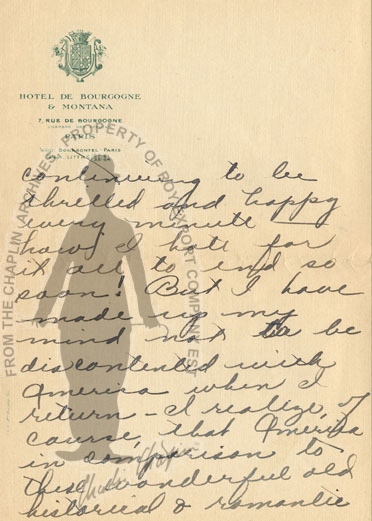 HOTEL DE BOURGOGNE
& MONTANA
7, RUE DE BOURGOGNE
PARIS
FROM THE CHAPLIN ARCHIVES. PROPERTY OF ROY EXPORT COMPANY EST
continuing to be
thrilled and happy
every minute –
how I hate for
it all to end so
soon! But I have
made up my
mind not to be
discontented with
America when I
return – I realize, of
course, that America
in comparison to
these wonderful old
historical & romantic